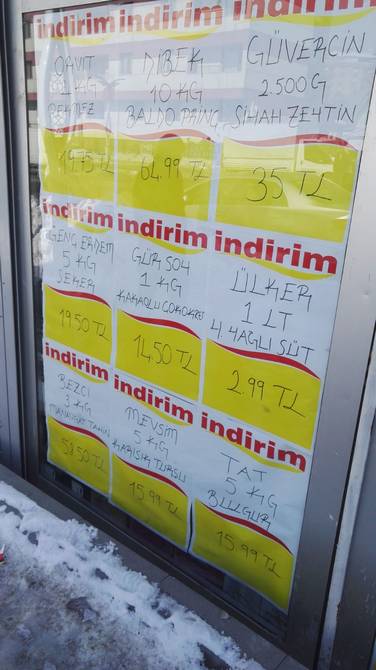 indirim
indirim
indirim
DAVIT
1 KG
PEKMEZ
19.75 TL
DİBEK
10 KG
BALDO PİRİNÇ
64.99 TL
GÜVERCİN
2.500 G
SİHAH ZEYTİN
35 TL
indirim
indirim
indirim
GENÇ ERDEM
5 KG
ŞEKER
19.50 TL
GÜRSOY
1 KG
14.50 TL
ÜLKER
1 LT
Y. YAĞLI SÜT
2.99 TL
indirim
indirim
indirim
BEZCİ
3 KG
TAHİN
58.50 TL
MEVSİM
5 KG
KARIŞIK TURŞU
15.99 TL
TAT
5 KG
BULGUR
15.99 TL